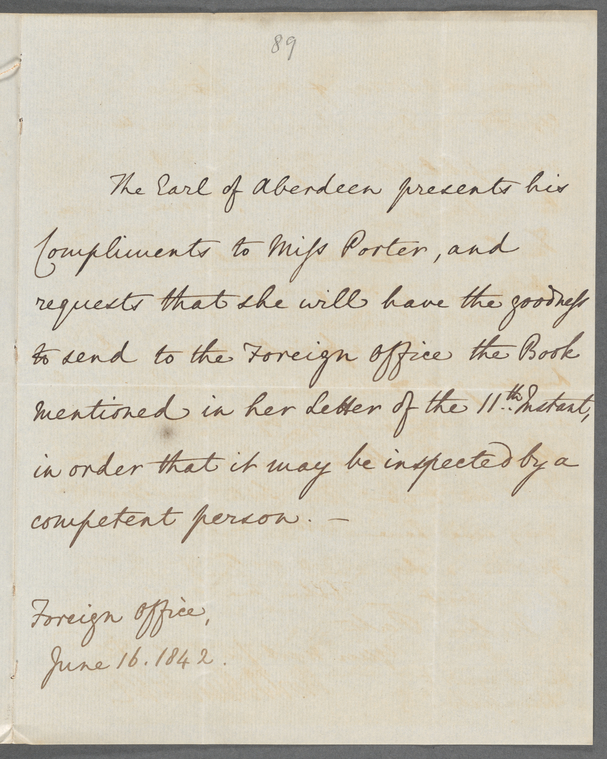 89
The Earl of Aberdeen presents his
Compliments to Miſs Porter, and
requests that she will have the goodneſs
to send to the Foreign Office the Book
mentioned in her Letter of the 11th Instant,
in order that it may be inspected by a
competent person. —
Foreign Office,
June 16. 1842.